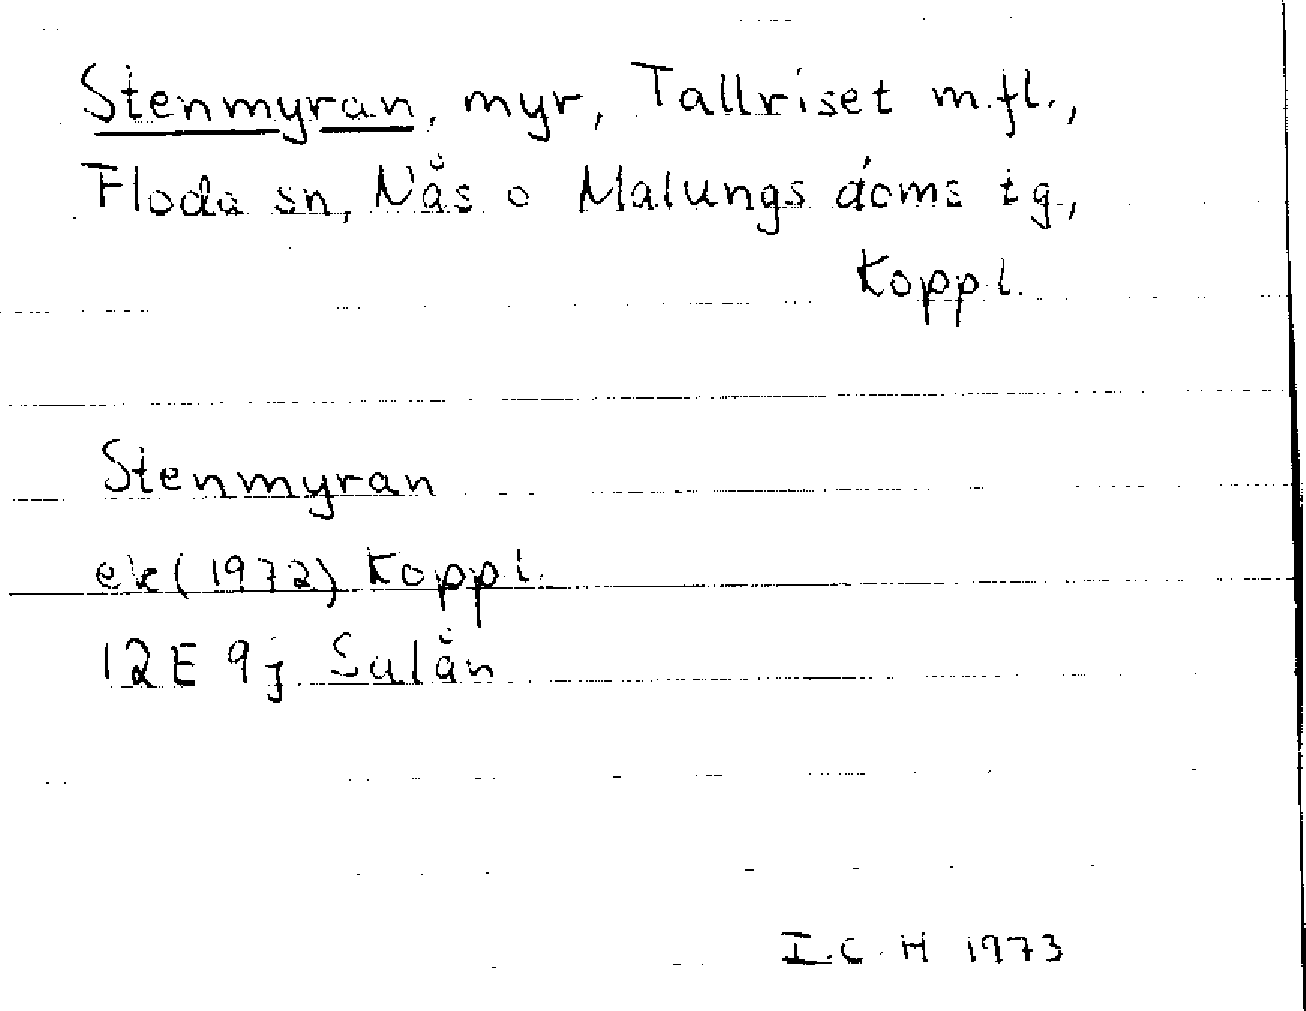 Stenmyran, myr, Tallriset m.fl.,
Floda sn, Nås o Malungs doms tg,
Koppl.
Stenmyran
ek (1972) Koppl.
12E 9j Sälån
I.C.H 1973